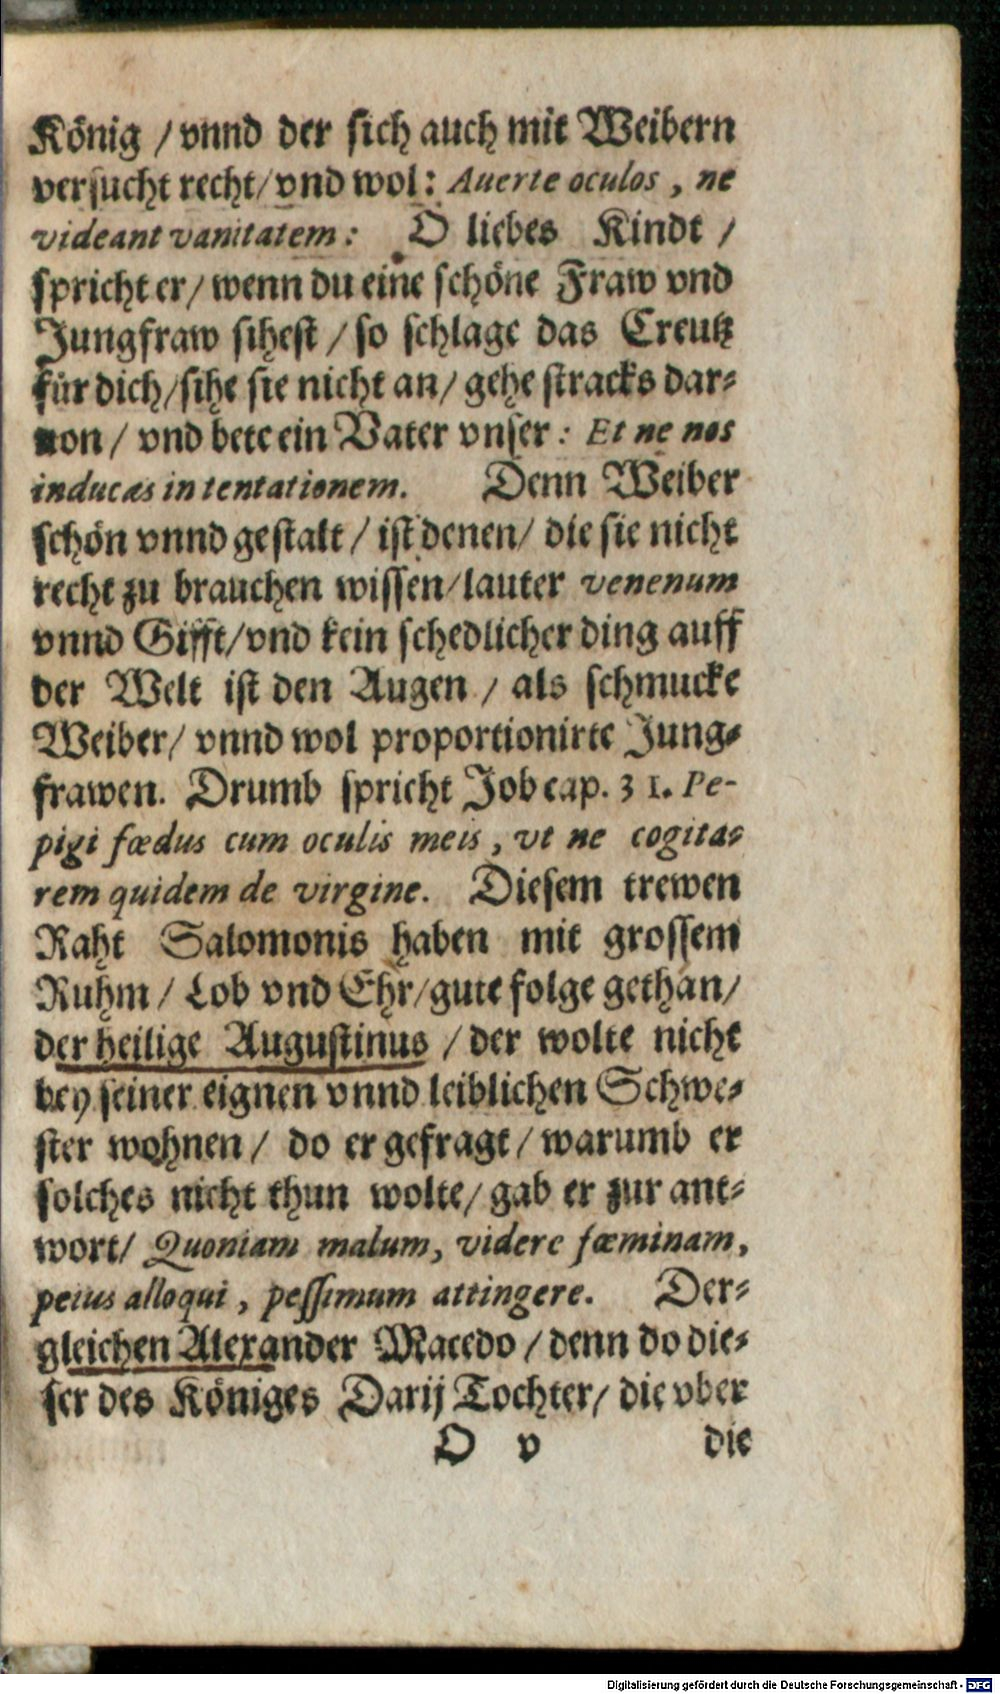 König / vnnd der sich auch mit Weibern
versucht recht / vnd wol: Auerte oculos, ne
videant vanitatem: O liebes Kindt /
spricht er / wenn du eine schöne Fraw vnd
Jungfraw sihest / so schlage das Creutz
für dich / sihe sie nicht an / gehe stracks dar-
uon / vnd bete ein Vater vnser: Et ne nos
inducas in tentationem. Denn Weiber
schön vnnd gestalt / ist denen / die sie nicht
recht zu brauchen wissen / lauter venenum
vnnd Gifft / vnd kein schedlicher ding auff
der Welt ist den Augen / als schmucke
Weiber / vnnd wol proportionirte Jung-
frawen. Drumb spricht Job cap. 31. Pe-
pigi fœdus cum oculis meis, vt ne cogita-
rem quidem de virgine. Diesem trewen
Raht Salomonis haben mit grossem
Ruhm / Lob vnd Ehr / gute folge gethan /
der heilige Augustinus / der wolte nicht
bey seiner eignen vnnd leiblichen Schwe-
ster wohnen / do er gefragt / warumb er
solches nicht thun wolte / gab er zur ant-
wort / Quoniam malum, videre fæminam,
peius alloqui, pessimum attingere. Der-
gleichen Alexander Macedo / denn do die-
ser des Königes Darij Tochter / die vber
O v die
Digitalisierung gefördert durch die Deutsche Forschungsgemeinschaft - DFG